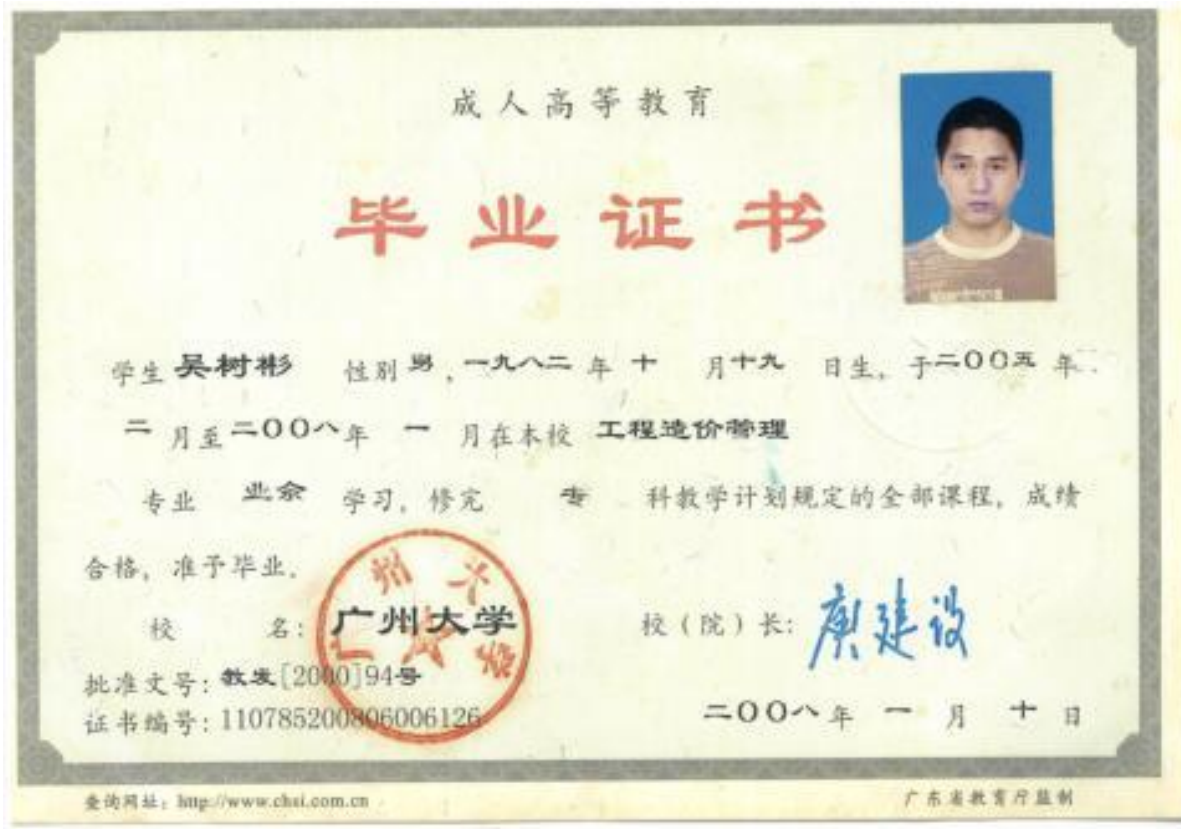 成人高等教育
毕业证书
学生 吴树彬 性别 男，一九八二 年 十 月 十九 日生，于二〇〇五 年
二 月至 二〇〇八 年 一 月在本校 工程造价管理
专业 业余 学习，修完 专 科教学计划规定的全部课程，成绩
合格，准予毕业。
校 名：广州大学
校（院）长：庾建设
批准文号：教发[2000]94号
证书编号：110785200806006126
二〇〇八 年 一 月 十 日
查询网址：http://www.chsi.com.cn
广东省教育厅监制